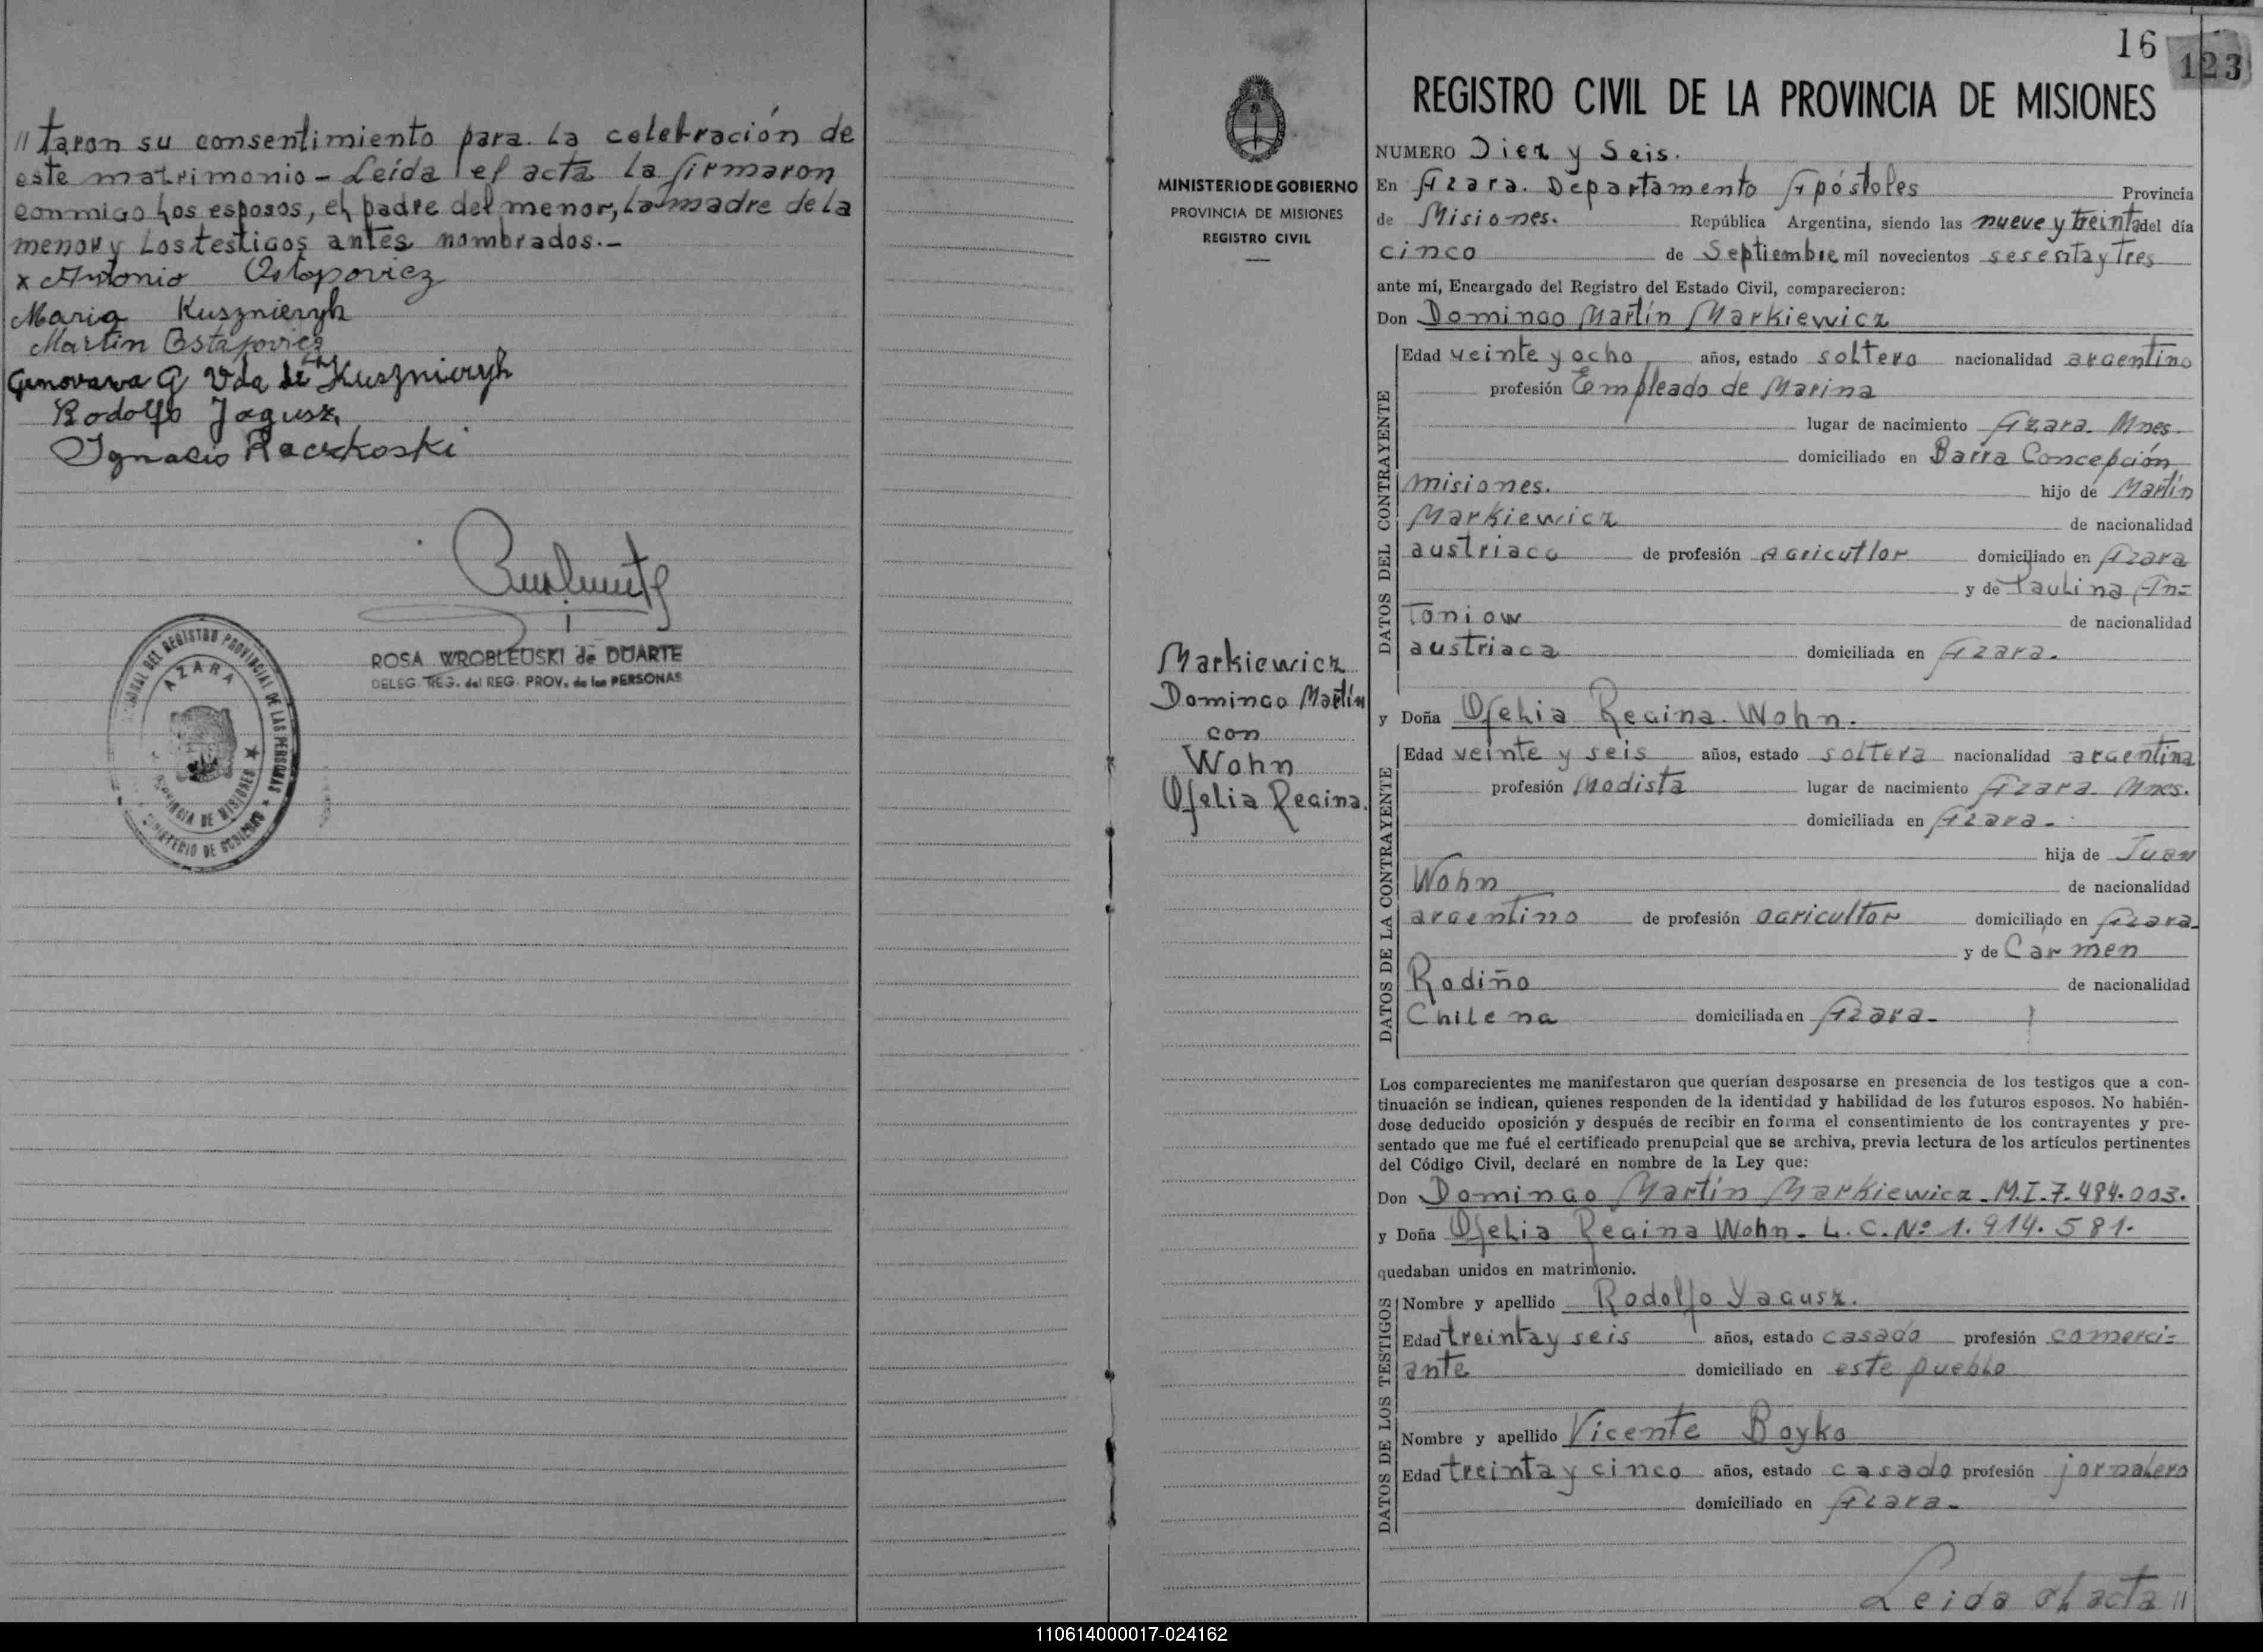 // taron su consentimiento para la celebración de
este matrimonio - Leída el acta la firmaron
conmigo Los esposos, el padre del menor, La madre de la
menor y Los testigos antes nombrados.-
x Antonio Ostapovicz
Maria Kusznieryk
Martin Ostapovicz
Genovava G Vda de Kusznieryk
Rodolfo Jagusz
Ignacio Raczkoski
ROSA WROBLEUSKI de DUARTE
DELEG. REG. del REG. PROV. de las PERSONAS
AZARA
PROVINCIA DE MISIONES
MINISTERIO DE GOBIERNO
PROVINCIA DE MISIONES
REGISTRO CIVIL
Markiewicz
Domingo Martín
con
Wohn
Ofelia Regina.
16
123
REGISTRO CIVIL DE LA PROVINCIA DE MISIONES
NUMERO Diez y Seis.
En Azara. Departamento Apóstoles Provincia
de Misiones. República Argentina, siendo las nueve y treinta del día
cinco de Septiembre mil novecientos sesenta y Tres
ante mí, Encargado del Registro del Estado Civil, comparecieron:
Don Domingo Martín Markiewicz
DATOS DEL CONTRAYENTE
Edad veinte y ocho años, estado soltero nacionalidad argentino
profesión Empleado de Marina
lugar de nacimiento Azara. Mnes.
domiciliado en Barra Concepción,
misiones. hijo de Martín
Markiewicz de nacionalidad
austriaco de profesión agricutlor domiciliado en Azara
y de Paulina An=
Toniow de nacionalidad
austriaca domiciliada en Azara.
y Doña Ofelia Regina. Wohn.
DATOS DE LA CONTRAYENTE
Edad veinte y seis años, estado soltera nacionalidad argentina
profesión Modista lugar de nacimiento Azara. Mnes.
domiciliada en Azara.
hija de Juan
Wohn de nacionalidad
argentino de profesión agricultor domiciliado en Azara.
y de Carmen
Rodiño de nacionalidad
Chilena domiciliada en Azara.
Los comparecientes me manifestaron que querían desposarse en presencia de los testigos que a con-
tinuación se indican, quienes responden de la identidad y habilidad de los futuros esposos. No habién-
dose deducido oposición y después de recibir en forma el consentimiento de los contrayentes y pre-
sentado que me fué el certificado prenupcial que se archiva, previa lectura de los artículos pertinentes
del Código Civil, declaré en nombre de la Ley que:
Don Domingo Martín Markiewicz. M.I.7.484.003.
y Doña Ofelia Regina Wohn. L.C.Nº 1.914.581.
quedaban unidos en matrimonio.
DATOS DE LOS TESTIGOS
Nombre y apellido Rodolfo Yagusz.
Edad treinta y seis años, estado casado profesión comerci=
ante domiciliado en este pueblo
Nombre y apellido Vicente Boyko
Edad treinta y cinco años, estado casado profesión jornalero
domiciliado en Azara.
Leida el acta //
110614000017-024162